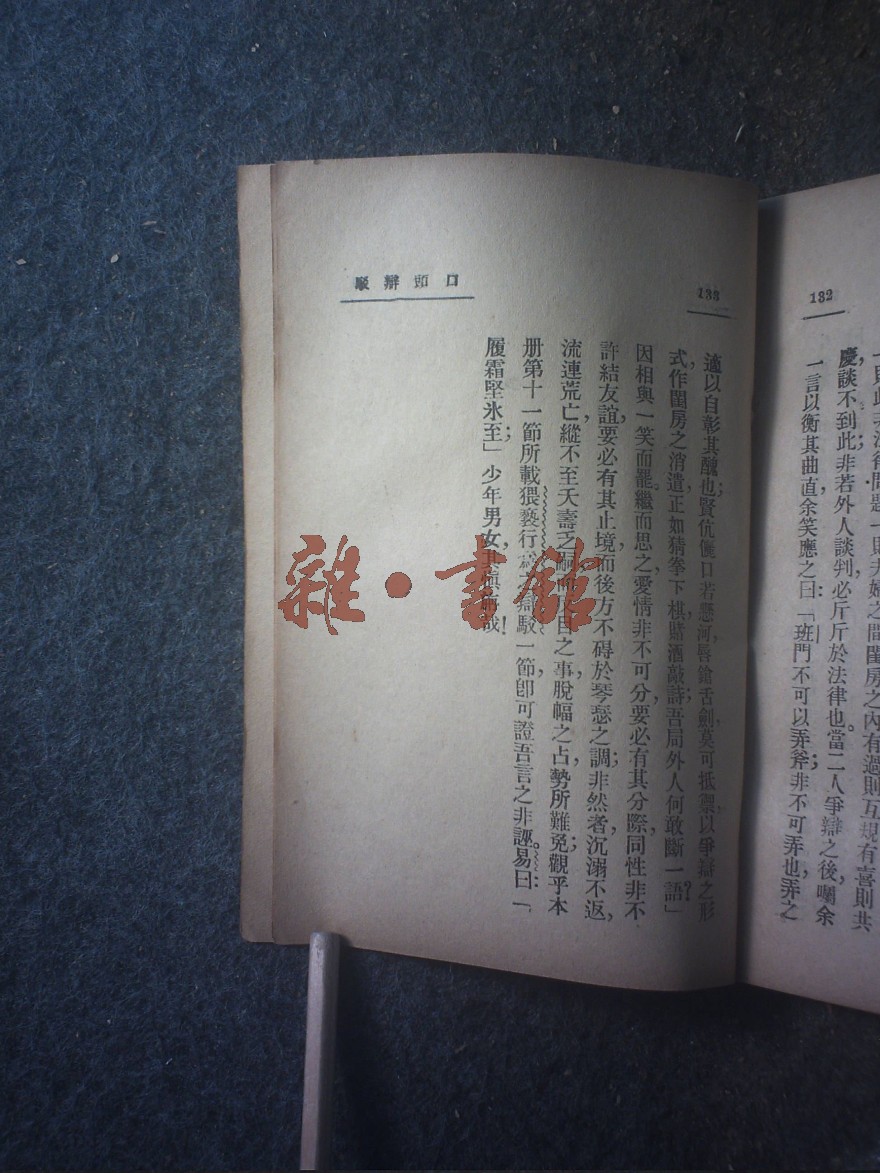 132
一則夫婦之間閨房之內有過則互規有喜則共
慶,談不到此;非若外人談判必斤斤於法律也。當二人爭辯之後,囑余
一言以衡其曲直,余笑應之曰:「班門不可以弄斧;非不可弄也,弄之
133
口頭辯駁
適以自彰其醜也;賢伉儷口若懸河,唇鎗舌劍,莫可抵禦,以爭辯之形
式,作閨房之消遣,正如猜拳下棋,賭酒敲詩,吾局外人何敢斷一語?」
因相與一笑而罷。繼而思之,愛情非不可分,要必有其分際,同性非不
許結友誼,要必有其止境,而後方不碍於琴瑟之調;非然者,沉溺不返,
流連荒亡,縱不至夭壽乏嗣,而之事,脫幅之占,勢所難免;觀乎本
册第十一節所載猥褻行駁一節,卽可證吾言之非誣。易曰:「
履霜堅氷至;」少年男女,其哉!
雜·書館